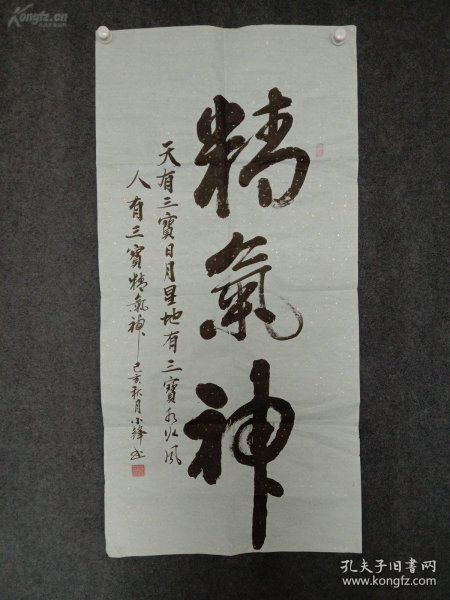 精氣神
天有三寳日月星地有三寳水火風
人有三寳精氣神
己亥秋月小鋒书
Kongfz.cn
孔夫子旧书网
www.kongfz.com